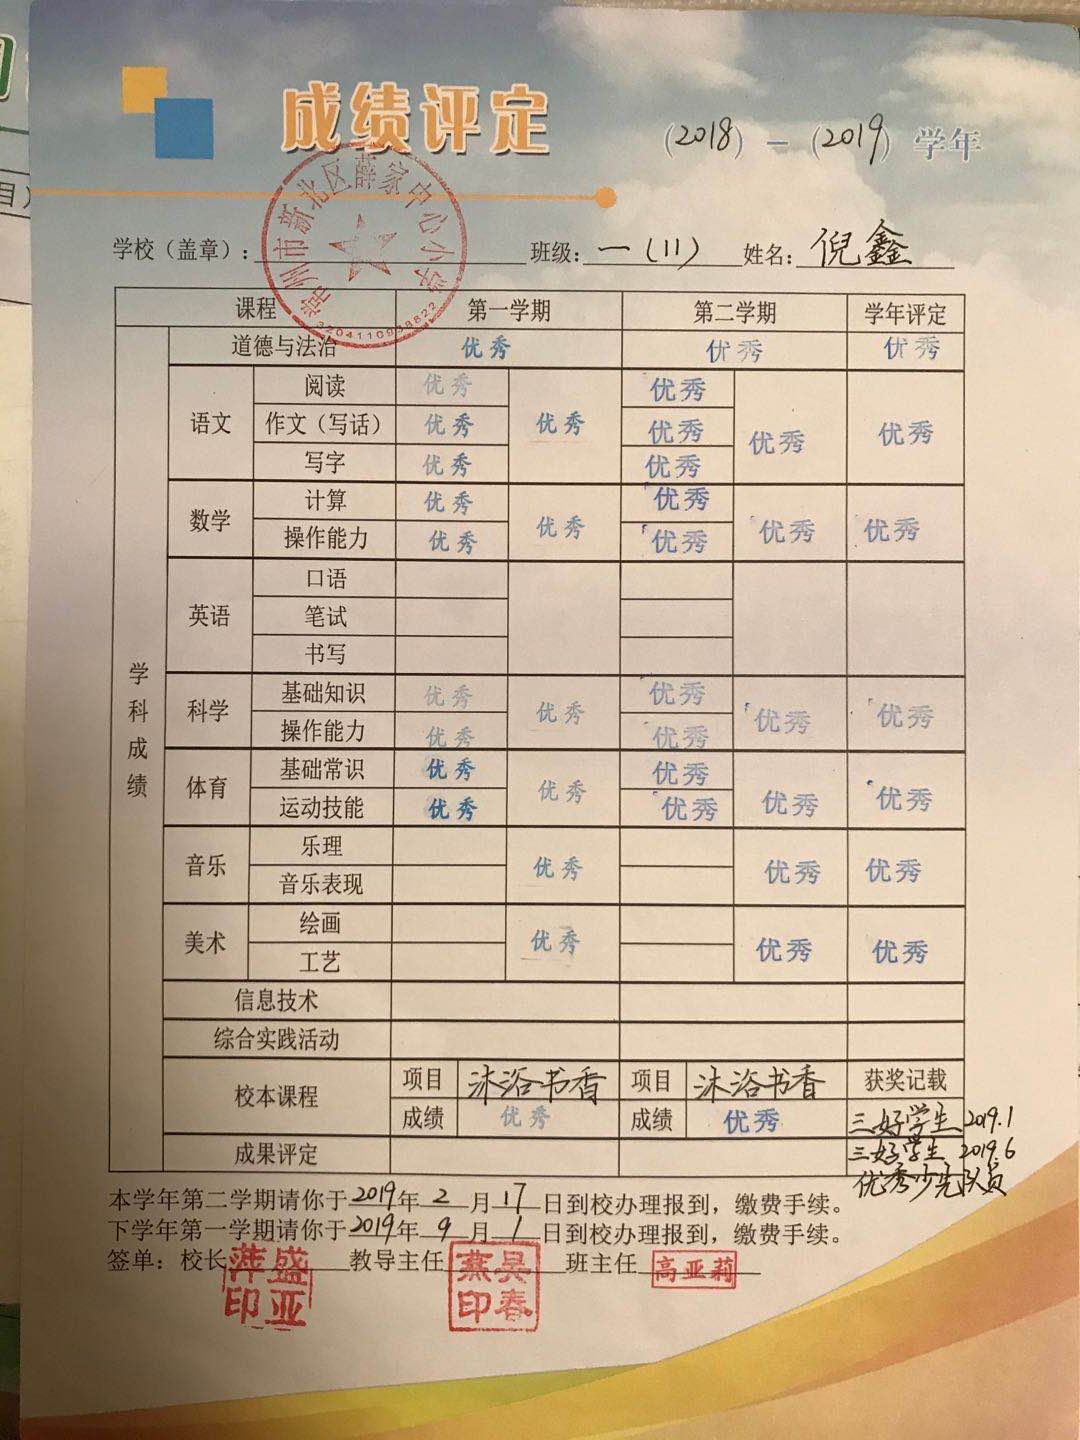 成绩评定
(2018) - (2019) 学年
常州市新北区薛家中心小学
学校（盖章）: 班级: 一(11) 姓名: 倪鑫
课程 第一学期 第二学期 学年评定
学科成绩
道德与法治 优秀 优秀 优秀
语文 阅读 优秀 优秀 优秀 优秀 优秀
作文（写话） 优秀 优秀
写字 优秀 优秀
数学 计算 优秀 优秀 优秀 优秀 优秀
操作能力 优秀 优秀
英语 口语
笔试
书写
科学 基础知识 优秀 优秀 优秀 优秀 优秀
操作能力 优秀 优秀
体育 基础常识 优秀 优秀 优秀 优秀 优秀
运动技能 优秀 优秀
音乐 乐理 优秀 优秀 优秀
音乐表现
美术 绘画 优秀 优秀 优秀
工艺
信息技术
综合实践活动
校本课程 项目 沐浴书香 项目 沐浴书香 获奖记载
成绩 优秀 成绩 优秀 三好学生 2019.1
成果评定 三好学生 2019.6
优秀少先队员
本学年第二学期请你于2019年2月17日到校办理报到，缴费手续。
下学年第一学期请你于2019年9月1日到校办理报到，缴费手续。
签单：校长 盛亚萍印 教导主任 吴春燕印 班主任 高亚莉